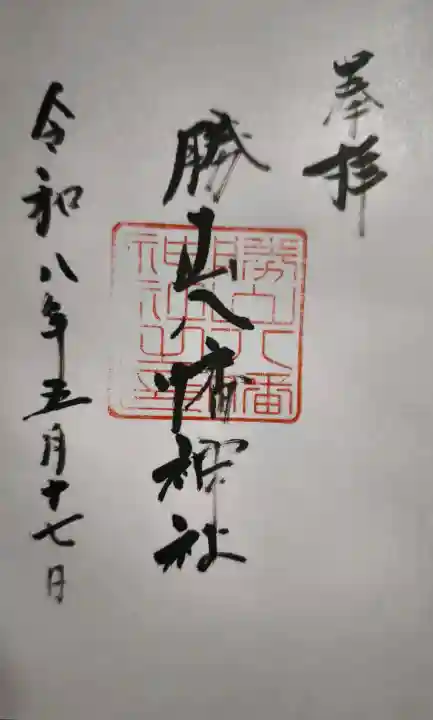 奉拝
勝山八幡神社
勝山八幡
神社之印
令和八年五月十七日